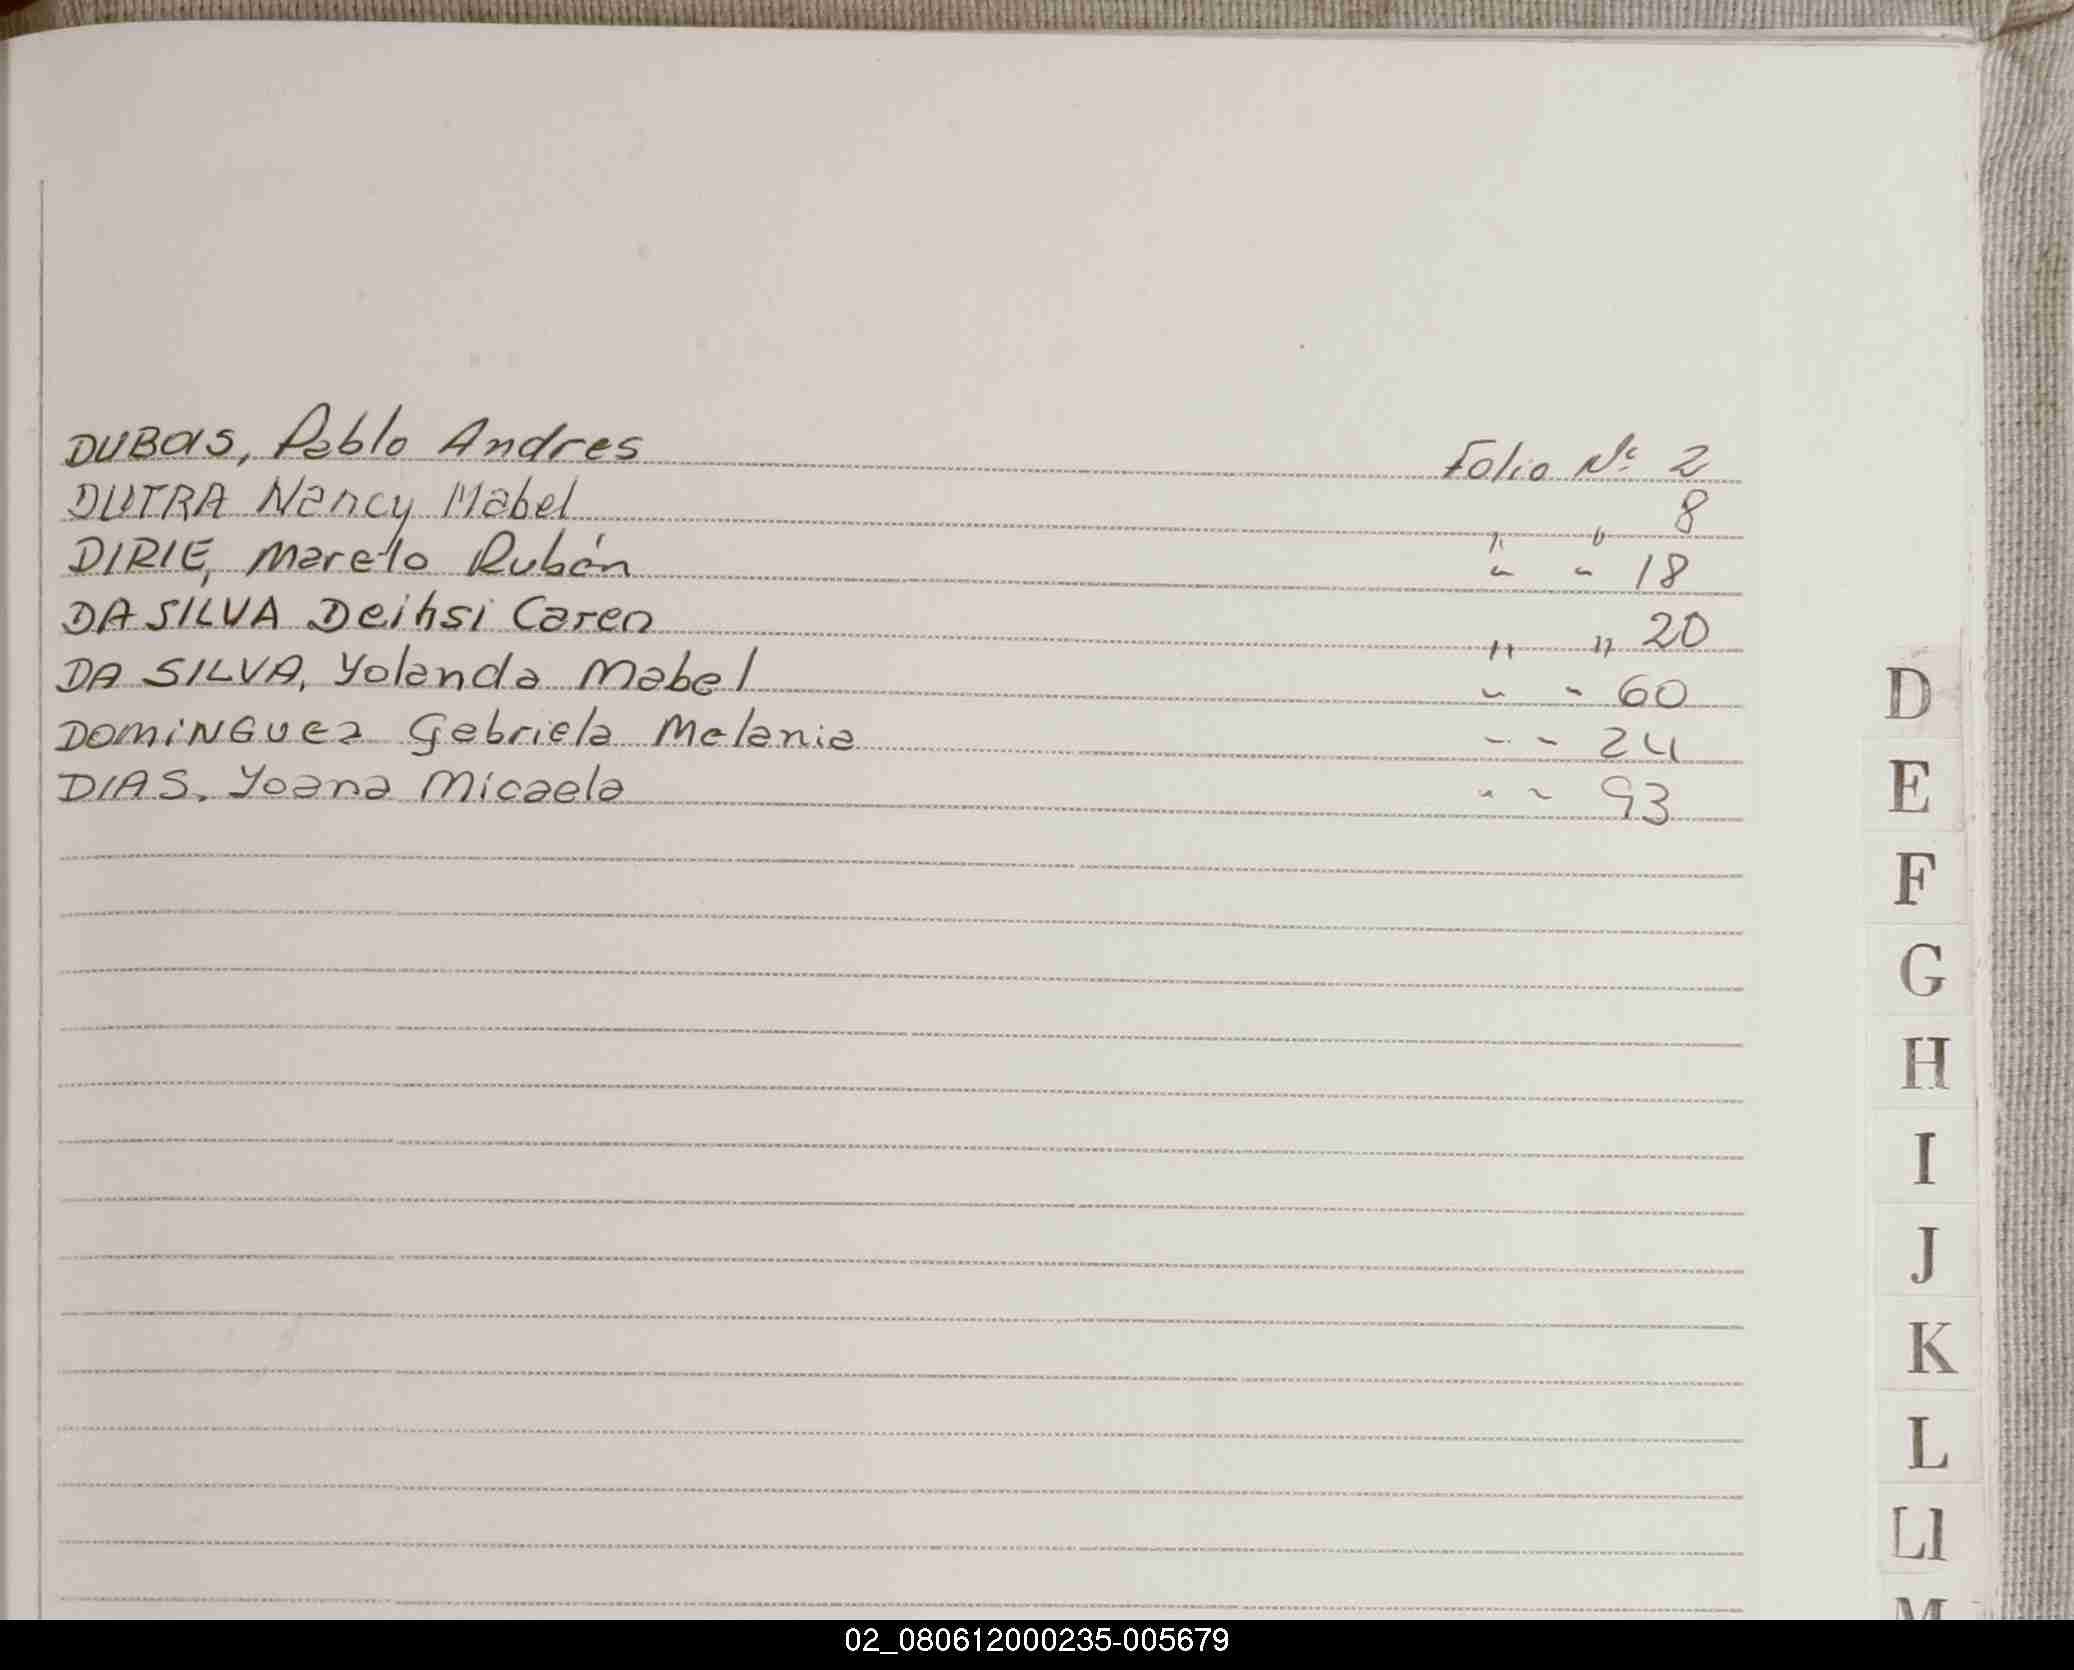 DUBOIS, Pablo Andres Folio Nº 2
DUTRA Nancy Mabel " " 8
DIRIE, Marelo Rubén " " 18
DA SILVA Deihsi Caren " " 20
DA SILVA, Yolanda Mabel " " 60
DOMINGUEZ Gebriela Melania " " 24
DIAS, Yoana Micaela " " 93
D
E
F
G
H
I
J
K
L
Ll
M
02_080612000235-005679